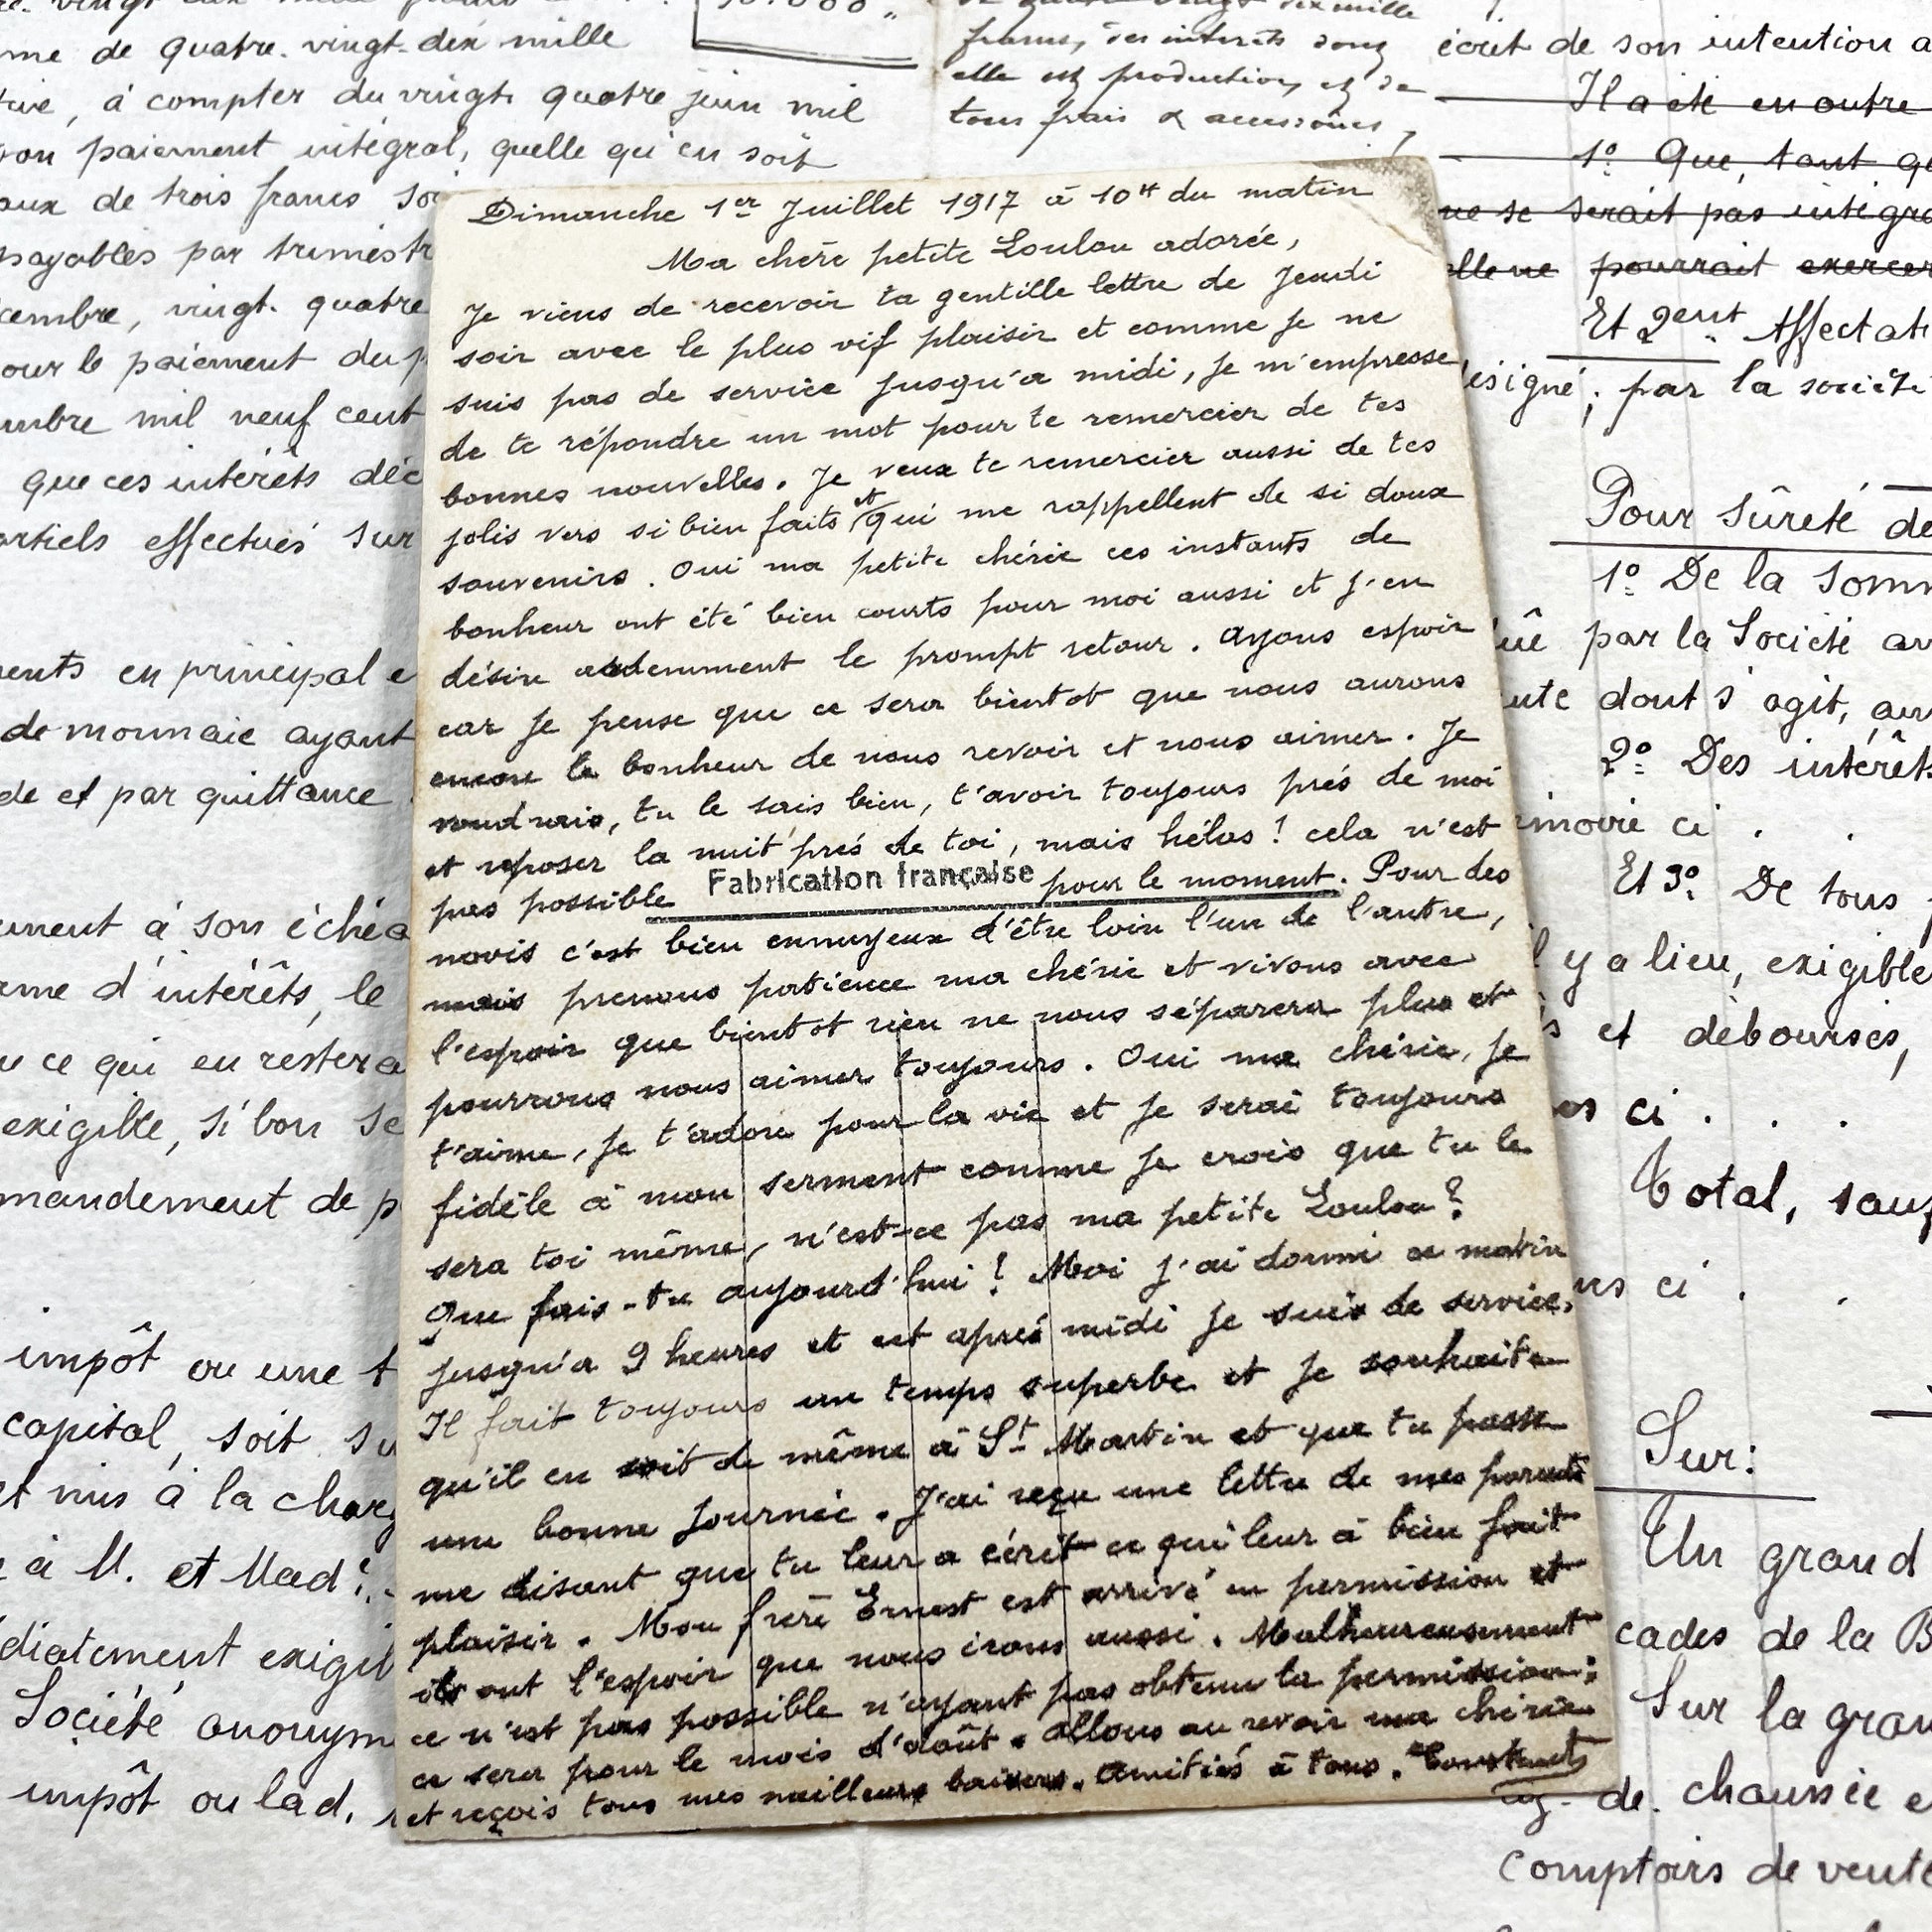 vingt
30.000 „
me de quatre. vingt-dix mille
, à compter du vingt quatre juin mil
paiement intégral, quelle qu'en soit
aux de trois francs soi
payables par trimestr
cembre, vingt. quatre
our le paiement du p
mbre mil neuf cent
que ces intérêts déc
artiels effectués sur
ents en principal e
de monnaie ayant
de et par quittance
ument à son éché
rme d'intérêts, le
u ce qui en restera
exigible, si bon se
mandement de p
impôt ou une t
capital, soit su
et mis à la charg
à M. et Mad
diatement exigib
Société anonym
impôt ou lad.
mille
francs, des intérêts dont
elle est productive, et de
tous frais & accessoires,
Dimanche 1er Juillet 1917 à 10H du matin
Ma chère petite Loulou adorée,
Je viens de recevoir ta gentille lettre de Jeudi
soir avec le plus vif plaisir et comme je ne
suis pas de service jusqu'à midi, je m'empresse
de te répondre un mot pour te remercier de tes
bonnes nouvelles. Je veux te remercier aussi de tes
jolis vers si bien faits et qui me rappellent de si doux
souvenirs. Oui ma petite chérie ces instants de
bonheur ont été bien courts pour moi aussi et j'en
désire ardemment le prompt retour. Ayons espoir
car je pense que ce sera bientôt que nous aurons
encore le bonheur de nous revoir et nous aimer. Je
voudrais, tu le sais bien, t'avoir toujours près de moi
et reposer la nuit près de toi, mais hélas ! cela n'est
pas possible Fabrication française pour le moment. Pour des
novis c'est bien ennuyeux d'être loin l'un de l'autre,
mais prenons patience ma chérie et vivons avec
l'espoir que bientôt rien ne nous séparera plus et
pourrons nous aimer toujours. Oui ma chérie, je
t'aime, je t'adore pour la vie et je serai toujours
fidèle à mon serment comme je crois que tu le
sera toi même, n'est-ce pas ma petite Loulou ?
Que fais-tu aujourd'hui ? Moi j'ai dormi ce matin
jusqu'à 9 heures et cet après midi je suis de service.
Il fait toujours un temps superbe et je souhaite
qu'il en soit de même à St Martin et que tu passe
une bonne journée. J'ai reçu une lettre de mes parents
me disant que tu leur a écrit ce qui leur à bien fait
plaisir. Mon frère Ernest est arrivé en permission et
ils ont l'espoir que nous irons aussi. Malheureusement
ce n'est pas possible n'ayant pas obtenu la permission;
ce sera pour le mois d'août. Allons au revoir ma chérie
et reçois tous mes meilleurs baisers. Amitiés à tous.
écrit de son intention
Il a été en outre
1º Que, tant
ne se serait pas intégra
elle ne pourrait exercer
Et 2ent. Affectati
ésigné, par la société
Pour sûreté de
1º De la Somm
par la Société
dont s'agit,
2º Des intérêts
ci .
Et 3º De tous
il y a lieu, exigible
et débourses,
ci . . .
Total, sauf
ci . .
Sur:
Un grand
cades de la B
Sur la gran
de chaussée e
comptoirs de vente